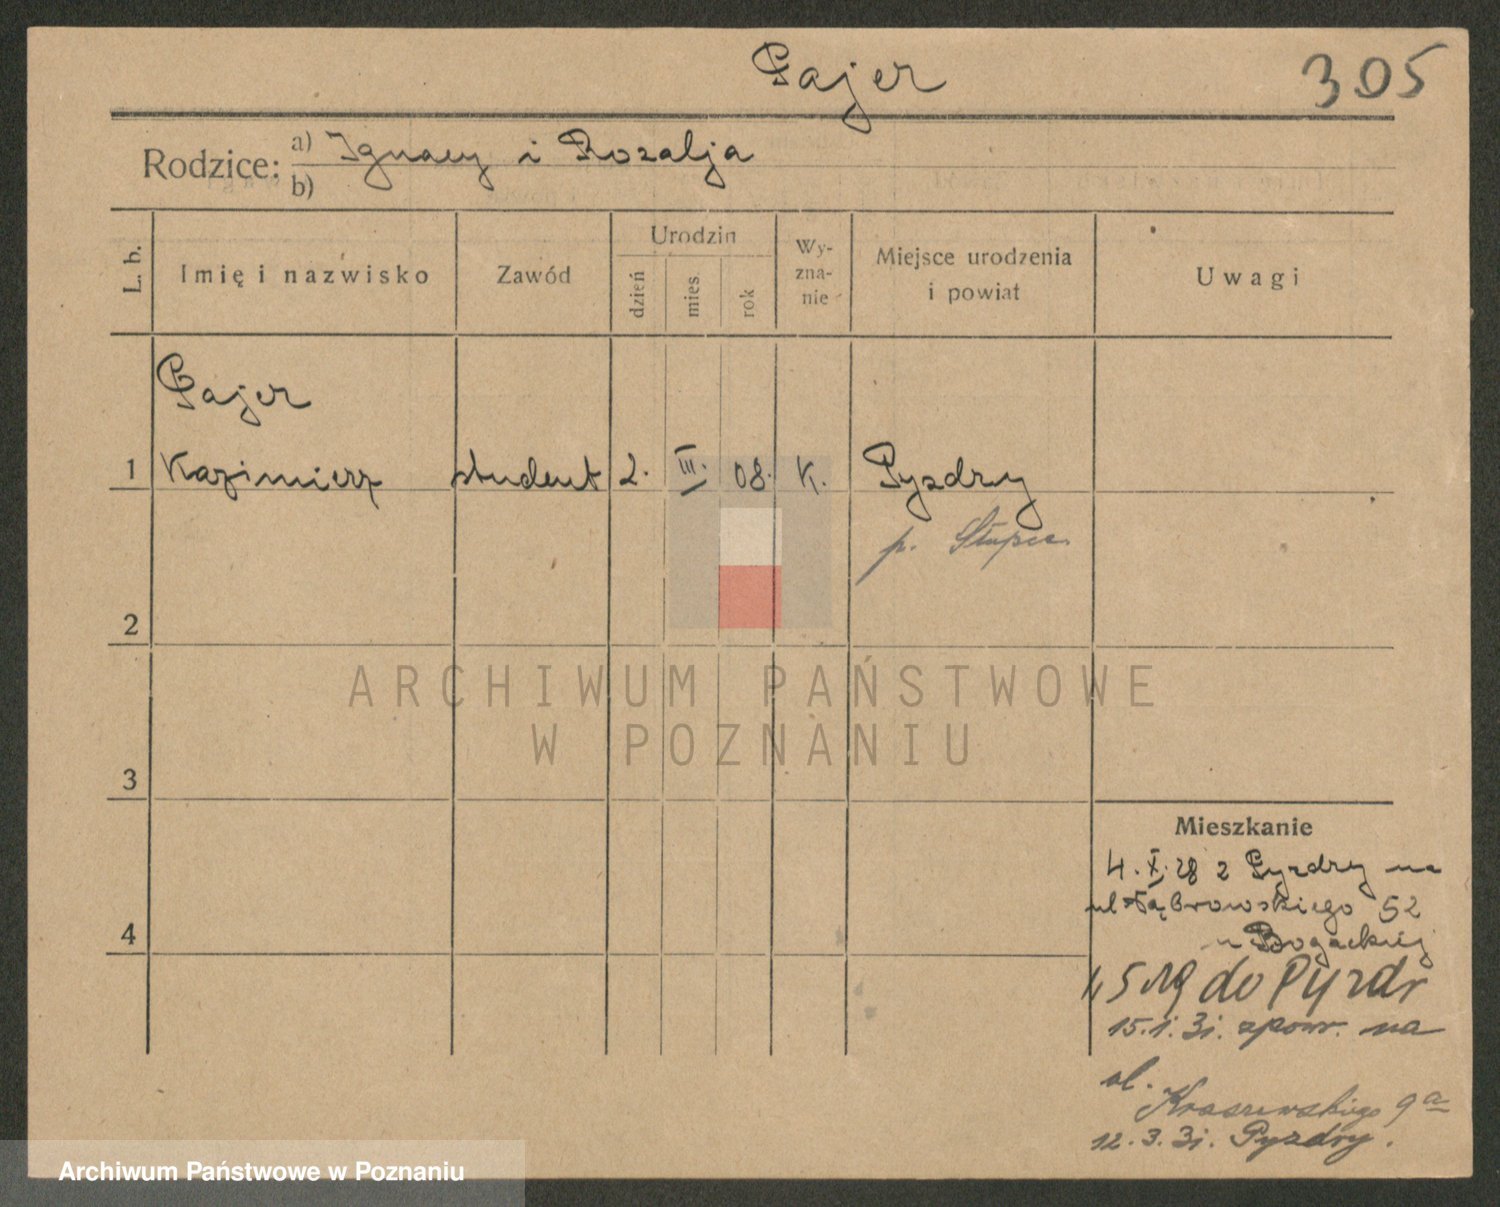 Pajer
305
Rodzice: a) Ignacy i Rozalja
b)
L. b.
Imię i nazwisko
Zawód
Urodzin
dzień
mies.
rok
Wy-
zna-
nie
Miejsce urodzenia
i powiat
Uwagi
Pajer
1 Kazimierz student 2. III. 08. K. Pyzdry
p. Słupca
2
3
4
Mieszkanie
4. X. 28 z Pyzdry na
ul Dąbrowskiego 52
u Bogackiej
5 do Pyzdr
15.1.31. zpowr. na
ul.
Kraszewskiego 9a
12.3.31. Pyzdry.
ARCHIWUM PAŃSTWOWE
W POZNANIU
Archiwum Państwowe w Poznaniu